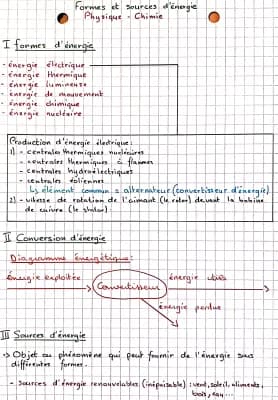 Formes et sources d'énergie
Physique - Chimie
I formes d'énergie
- énergie électrique
- énergie thermique
- énergie lumineuse
- énergie de mouvement
- énergie chimique
- énergie nucléaire
Production d'énergie électrique :
1) - centrales thermiques nucléaires
- centrales thermiques à flammes
- centrales hydroélectriques
- centrales éoliennes
↳ élément commun = alternateur (convertisseur d'énergie)
2) - vitesse de rotation de l'aimant (le rotor) devant la bobine
de cuivre (le stator)
II Conversion d'énergie
Diagramme énergétique :
Énergie exploitée
Convertisseur
énergie utile
énergie perdue
III Sources d'énergie
=> Objet ou phénomène qui peut fournir de l'énergie sous
différentes formes.
- Sources d'énergie renouvelables (inépuisable) : vent, soleil, aliments,
bois, eau...